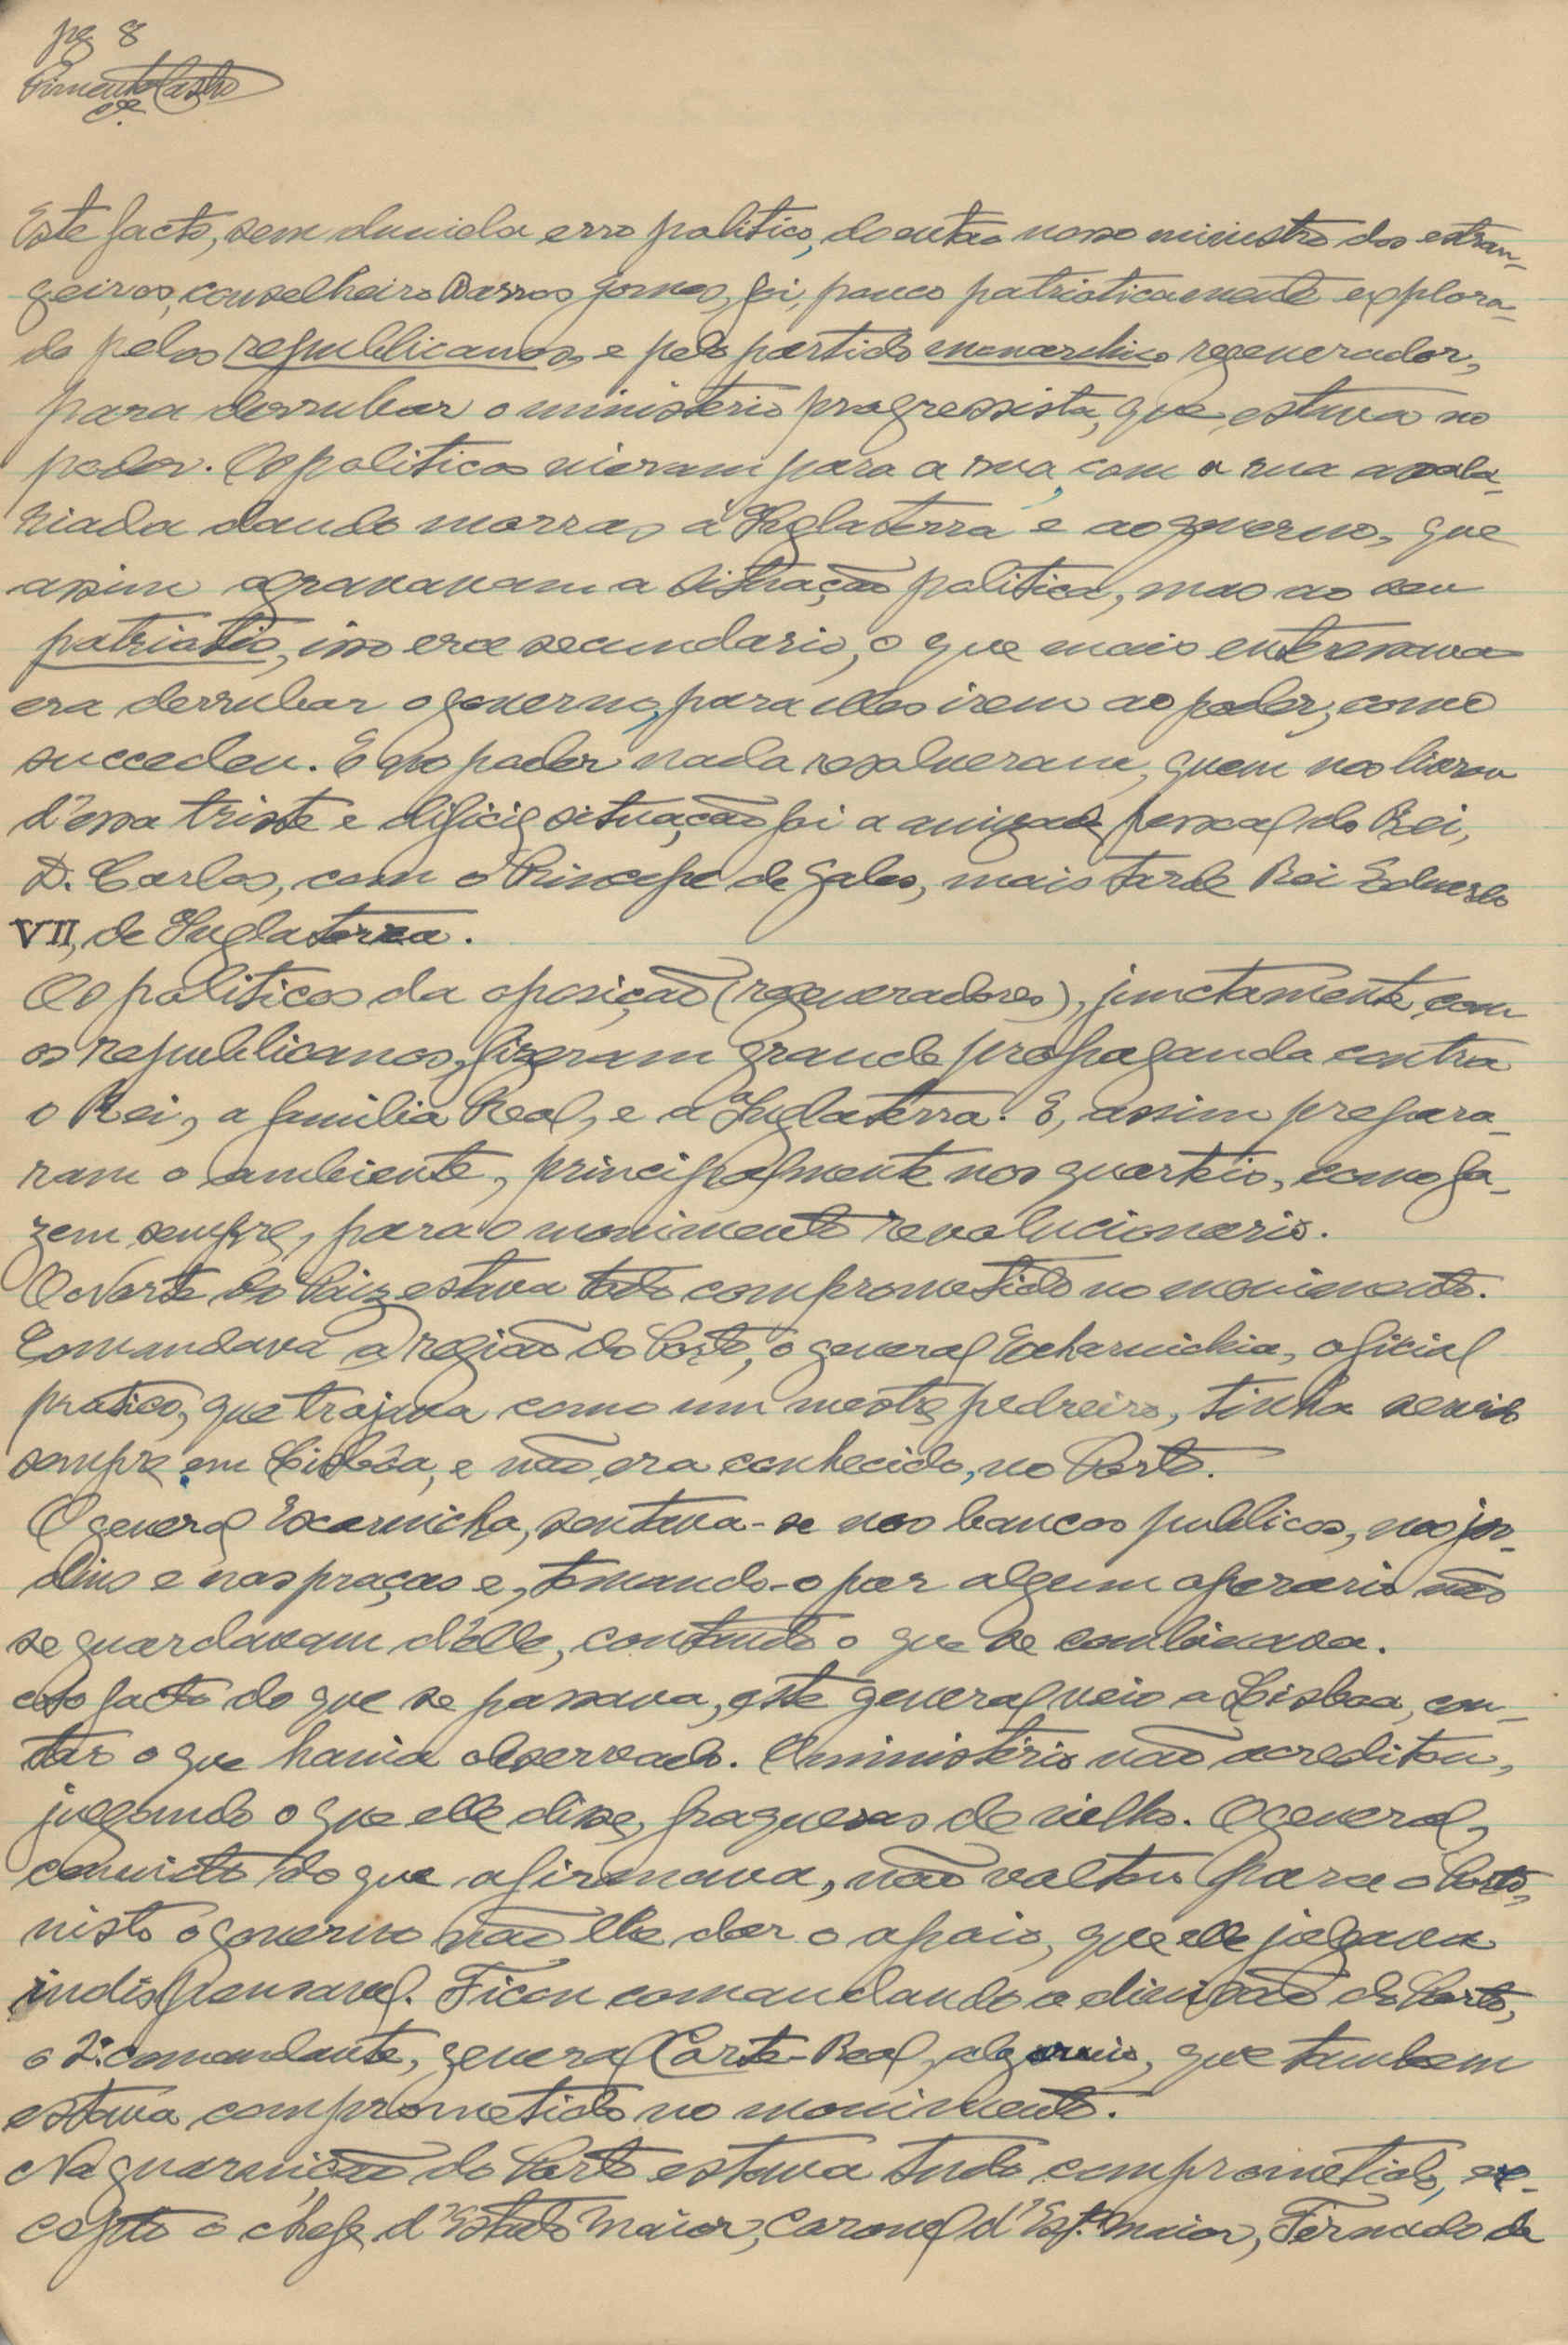 pg 8
Pimenta Castro
Este facto, sem duvida erro politico, do então nosso ministro dos estran-
geiros, conselheiro Barros Gomes, foi, pouco patrioticamente explora-
do pelos republicanos, e pelo partido monarchico regenerador,
para derrubar o ministerio progressista, que estava no
poder. Os politicos vieram para a rua, com a rua assala-
riada dando morras á Inglaterra e ao governo, que
assim agravavam a situação politica, mas ao seu
patriotis, isso era secundario, o que mais enteressava
era derrubar o governo, para elles irem ao poder, como
succedeu. E no poder nada resolveram, quem nos livrou
d'essa triste e dificil situação foi a amizade pessoal do Rei,
D. Carlos, com o Principe de Gales, mais tarde Rei Eduardo
VII, de Inglaterra.
Os politicos da oposição (regeneradores), junctamente com
os republicanos, fizeram grande propaganda contra
o Rei, a familia Real, e a Inglaterra. E, assim prepara-
ram o ambiente, principalmente nos quarteis, como fa-
zem sempre, para o movimento revolucionario.
O Norte do Paiz estava todo comprometido no movimento.
Comandava a região do Porto, o general Echarnichia, oficial
pratico, que trajava como um mestre pedreiro, tinha servido
sempre em Lisbôa, e não era conhecido, no Porto.
O general Excarnicha, sentava-se nos bancos publicos, nos jar-
dins e nas praças e, tomando-o por algum operario não
se guardavam d'elle, contando o que se combinava.
Ao facto do que se passava, este general veio a Lisboa, con-
tar o que havia observado. O ministério não acreditou,
julgando o que elle disse, fraquesas de velho. O general,
convicto do que afirmava, não voltou para o Porto,
visto o governo não lhe dar o apoio, que elle julgava
indispensavel. Ficou comandando a divisão do Porto,
o 2º. comandante, general Corte-Real, algarvio, que tambem
estava comprometido no movimento.
Na guarnição do Porto estava tudo comprometido, ex-
cepto o chefe d'Estado Maior, Coronel d'Est.º Maior, Fernado de